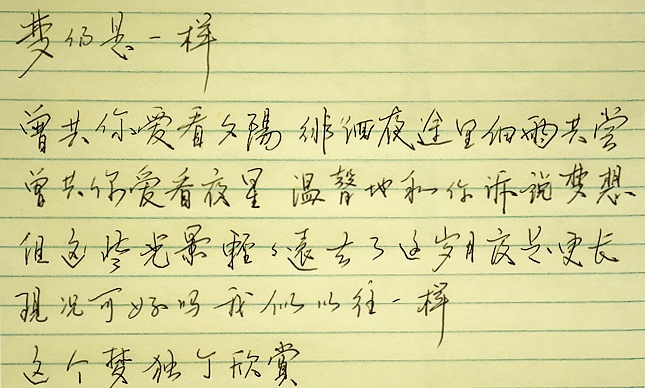 梦仍是一样
曾共你爱看夕陽 徘徊夜途里细雨共赏
曾共你爱看夜星 温馨地和你诉说梦想
但这些光景輕輕遠去了这岁月夜是更长
现况可好吗我似以往一样
这个梦独个欣賞